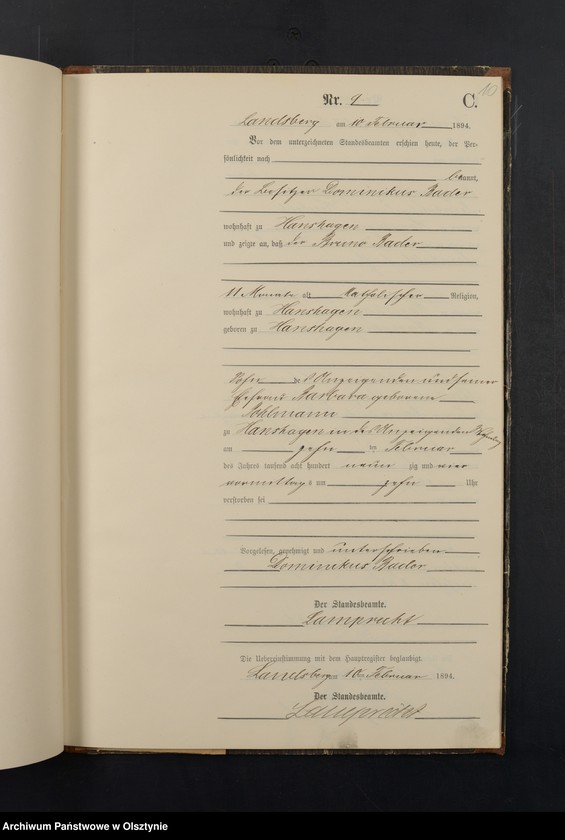 10
Nr. 9 C.
Landsberg am 10 Februar 1894.
Vor dem unterzeichneten Standesbeamten erschien heute, der Per-
sönlichkeit nach
bekannt,
der Besitzer Dominikus Bader
wohnhaft zu Hanshagen
und zeigte an, daß der Bruno Bader
11 Monate alt katholischer Religion,
wohnhaft zu Hanshagen
geboren zu Hanshagen
Sohn des Anzeigenden und seiner
Ehefrau Barbara geborene
Pohlmann
zu Hanshagen in des Anzeigenden Wohnung
am zehn ten Februar
des Jahres tausend acht hundert neun zig und vier
vormittags um zehn Uhr
verstorben sei
Vorgelesen, genehmigt und unterschrieben
Dominikus Bader
Der Standesbeamte.
Lamprecht
Die Uebereinstimmung mit dem Hauptregister beglaubigt.
Landsberg am 10 Februar 1894.
Der Standesbeamte.
Lamprecht
Archiwum Państwowe w Olsztynie